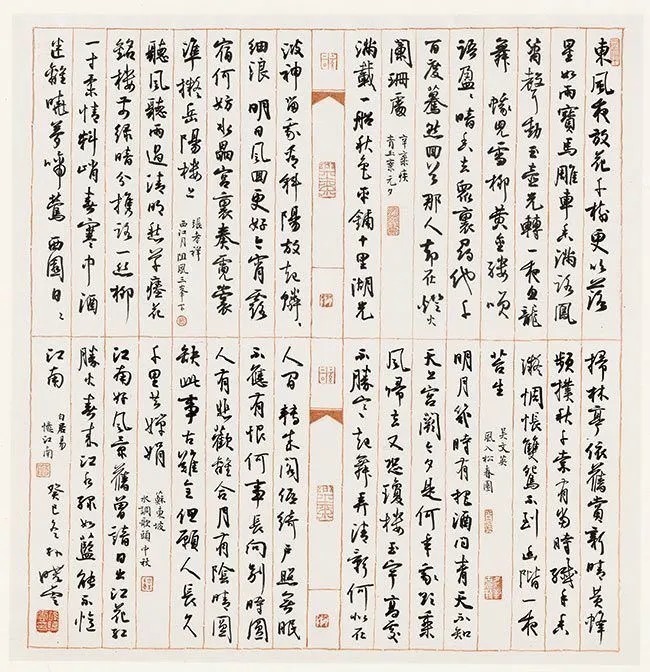 東風夜放花千樹更吹落
星如雨寶馬雕車香滿路鳳
簫聲動玉壺光轉一夜魚龍
舞 蛾兒雪柳黃金縷笑
語盈々暗香去眾裏尋他千
百度驀然回首那人卻在燈火
闌珊處
辛棄疾
青玉案元夕
滿載一船秋色平鋪十里湖光
波神留我看斜陽放起鱗々
細浪 明日風回更好今宵露
宿何妨水晶宮裏奏霓裳
準擬岳陽樓上
張孝祥
西江月阻風三峯下
聽風聽雨過清明愁草瘞花
銘樓前綠暗分攜路一絲柳
一寸柔情料峭春寒中酒
迷離曉夢啼鶯 西園日々
掃林亭依舊賞新晴黃蜂
頻撲秋千索有當時纖手香
凝惆悵雙鴛不到幽階一夜
苔生
吳文英
風入松春園
明月幾時有把酒問青天不知
天上宮闕今夕是何年我欲乘
風歸去又恐瓊樓玉宇高處
不勝寒起舞弄清影何似在
人間 轉朱閣低綺戶照無眠
不應有恨何事長向別時圓
人有悲歡離合月有陰晴圓
缺此事古難全但願人長久
千里共嬋娟
蘇東坡
水調歌頭中秋
江南好風景舊曾諳日出江花紅
勝火春來江水綠如藍能不憶
江南
白居易
憶江南
癸巳冬孙曉雲